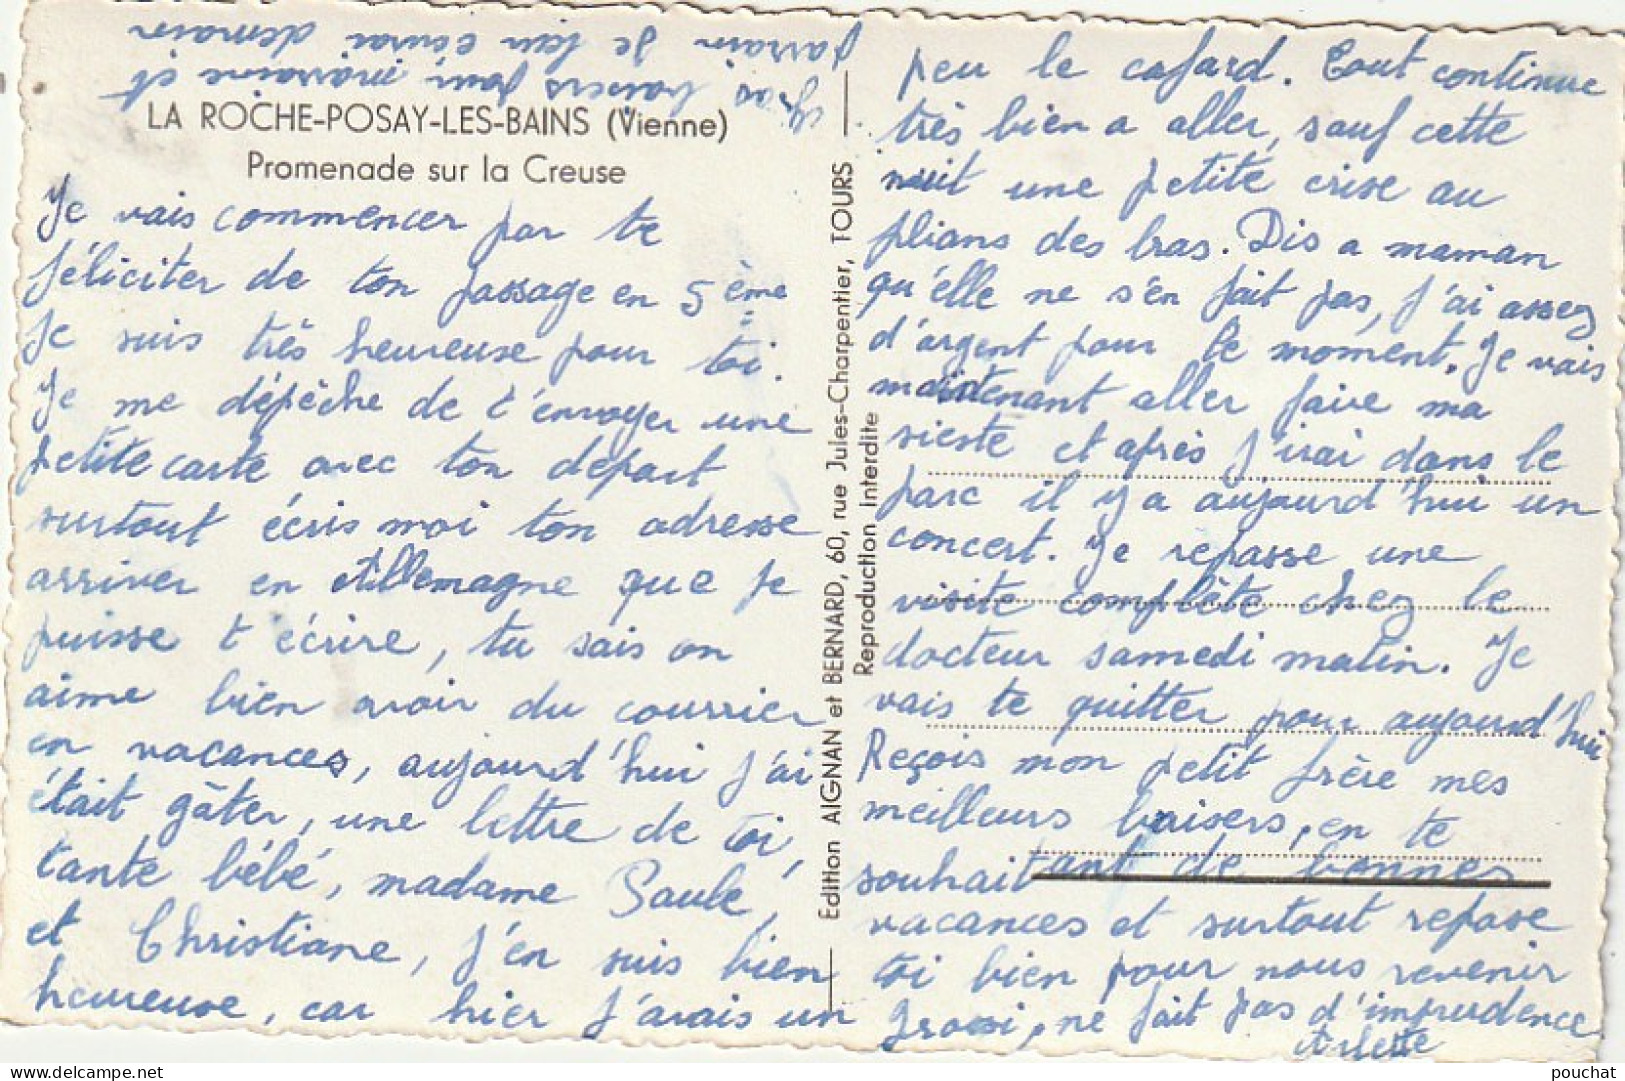 Gros baisers pour marraine et
parrain je leur écrirai demain
LA ROCHE-POSAY-LES-BAINS (Vienne)
Promenade sur la Creuse
Je vais commencer par te
féliciter de ton passage en 5ème
Je suis très heureuse pour toi.
Je me dépêche de t'envoyer une
petite carte avec ton départ
surtout écris moi ton adresse
arriver en Allemagne que je
puisse t'écrire, tu sais on
aime bien avoir du courrier
en vacances, aujourd'hui j'ai
était gâter, une lettre de toi,
tante bébé, madame Saule,
et Christiane, j'en suis bien
heureuse, car hier j'avais un
Edition AIGNAN et BERNARD, 60, rue Jules-Charpentier, TOURS
Reproduction Interdite
peu le cafard. Tout continue
très bien a aller, sauf cette
nuit une petite crise au
plians des bras. Dis a maman
qu'elle ne s'en fait pas, j'ai assez
d'argent pour le moment. Je vais
maintenant aller faire ma
sieste et après j'irai dans le
parc il y a aujourd'hui un
concert. Je repasse une
visite complète chez le
docteur samedi matin. Je
vais te quitter pour aujourd'hui
Reçois mon petit frère mes
meilleurs baisers, en te
souhaitant de bonnes
vacances et surtout repose
toi bien pour nous revenir
grossi, ne fait pas d'imprudence
Arlette
pouchat